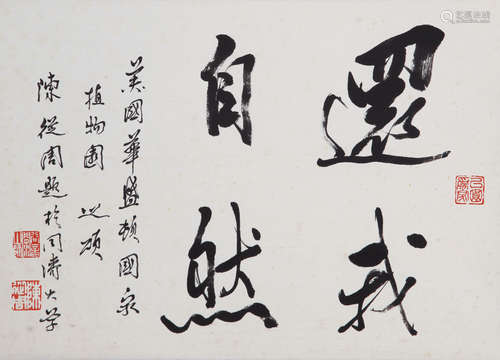 還我
自然
美國華盛頓國家
植物園
陳從周題於同濟大學